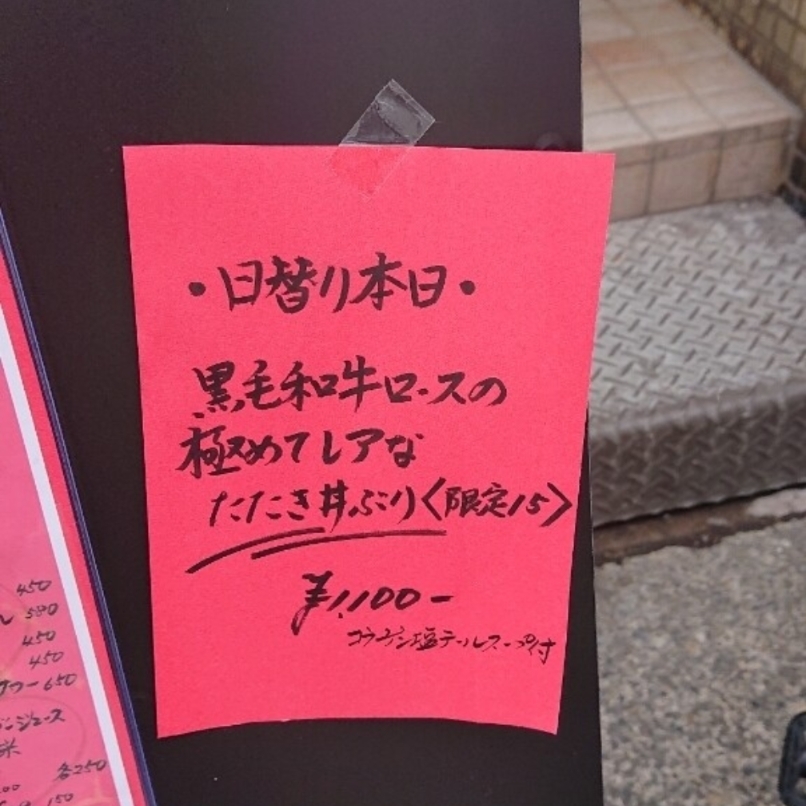 ・日替り本日・
黒毛和牛ロースの
極めてレアな
たたき丼ぶり〈限定15〉
¥1,100-
コラーゲン塩テールスープ付
450
580
450
450
サワー650
ジュース
米
各250
150